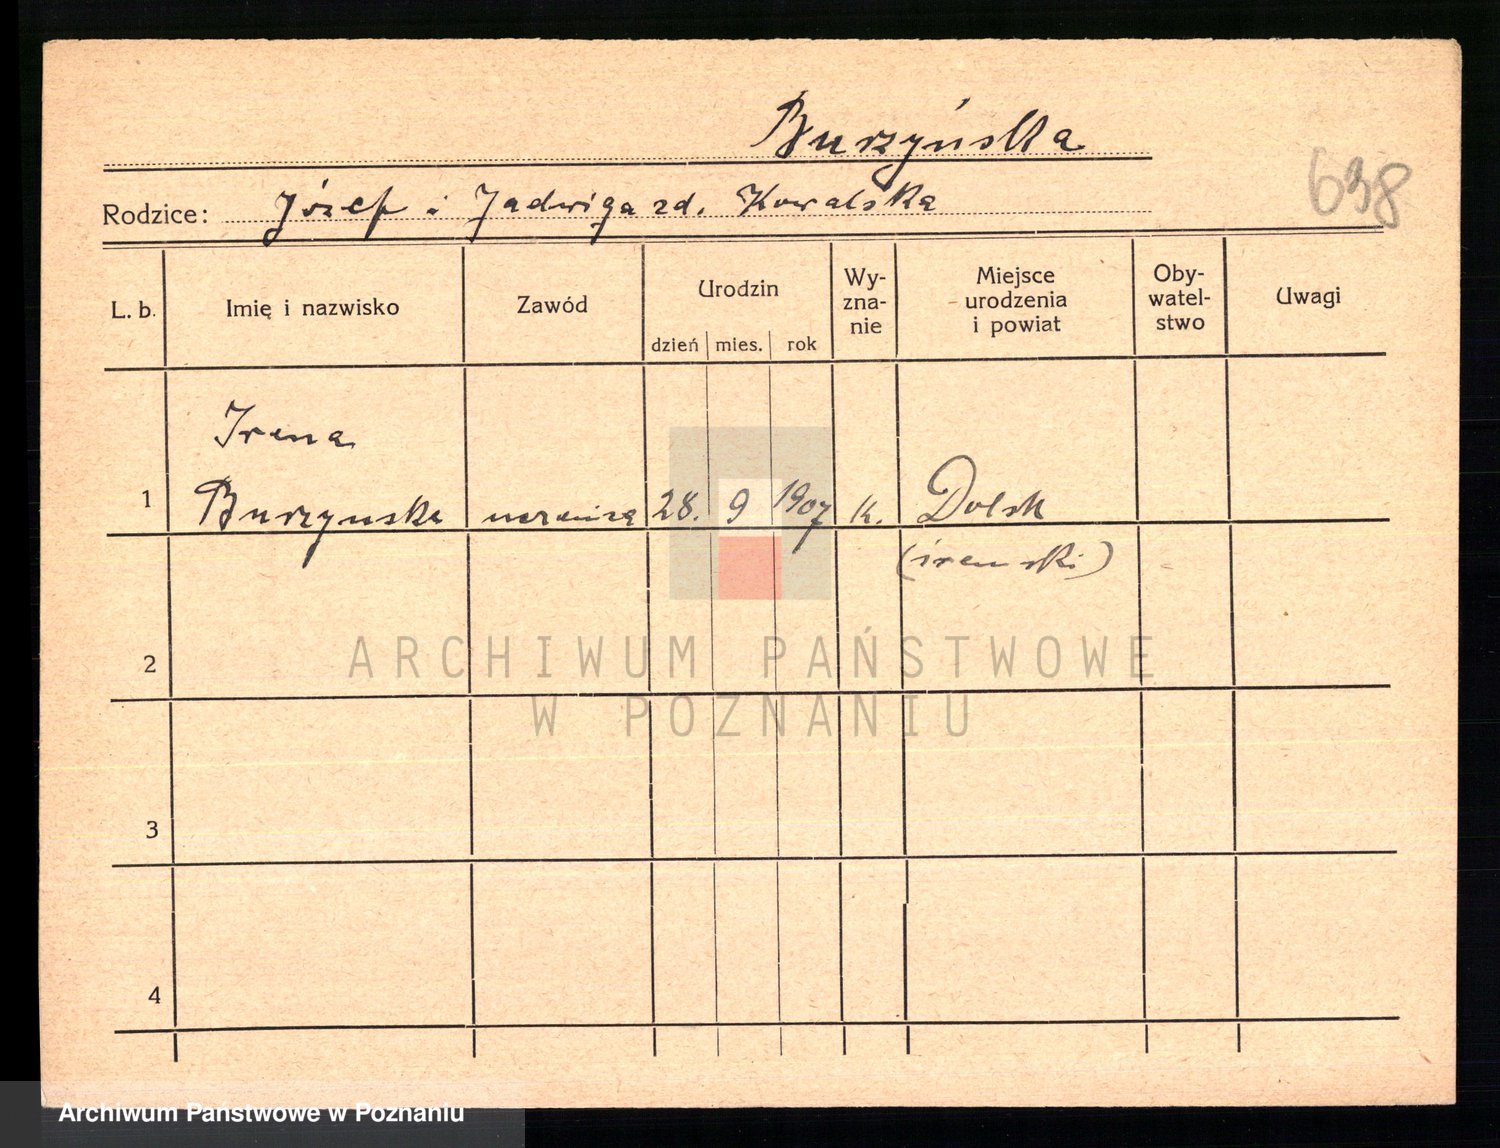 Burzyńska
638
Rodzice: Józef i Jadwiga zd. Kowalska
L. b. Imię i nazwisko Zawód Urodzin Wy-zna-nie Miejsce urodzenia i powiat Oby-watel-stwo Uwagi
dzień mies. rok
Irena
1 Burzynska 28. 9 1907 k. Dolsk
(śremski)
2
3
4
ARCHIWUM PAŃSTWOWE
W POZNANIU
Archiwum Państwowe w Poznaniu